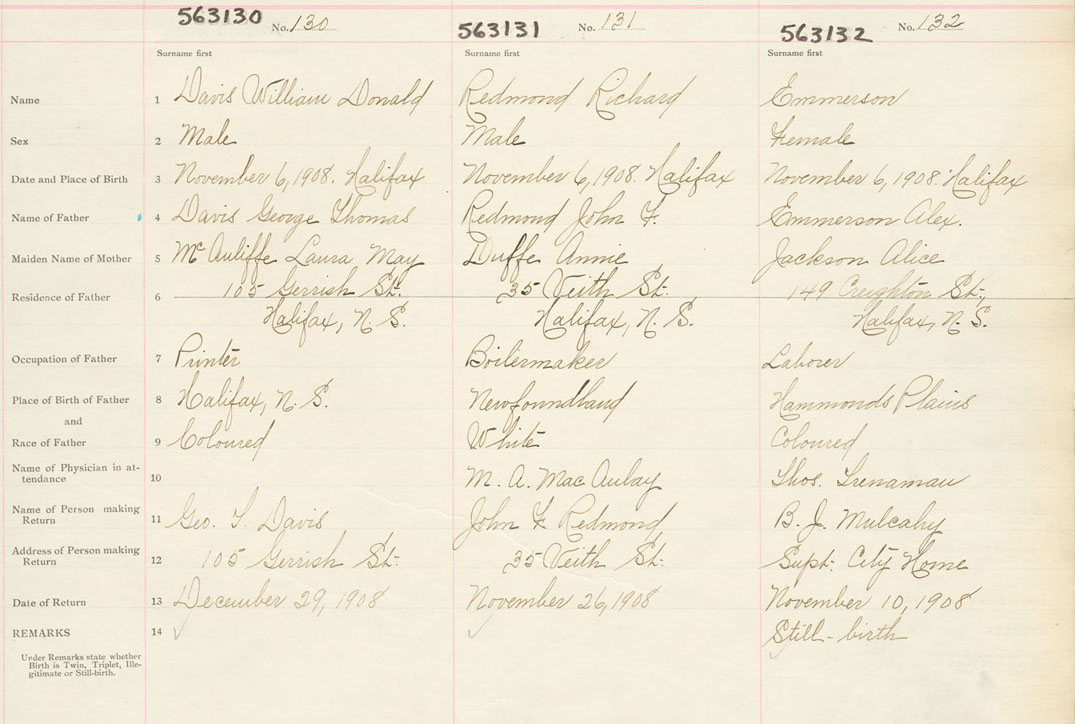 563130 No. 130 563131 No. 131 563132 No. 132
Surname first Surname first Surname first
Name 1 Davis William Donald Redmond Richard Emmerson
Sex 2 Male Male Female
Date and Place of Birth 3 November 6, 1908. Halifax November 6, 1908. Halifax November 6, 1908. Halifax
Name of Father 4 Davis George Thomas Redmond John F. Emmerson Alex.
Maiden Name of Mother 5 McAuliffe Laura May Duffe Annie Jackson Alice
Residence of Father 6 105 Gerrish St. 35 Veith St. 149 Creighton St.,
Halifax, N. S. Halifax, N. S. Halifax, N. S.
Occupation of Father 7 Printer Boilermaker Laborer
Place of Birth of Father 8 Halifax, N. S. Newfoundland Hammonds Plains
and
Race of Father 9 Coloured White Coloured
Name of Physician in at-
tendance 10 M. A. MacAulay Thos. Trenaman
Name of Person making
Return 11 Geo. T. Davis John F Redmond B. J. Mulcahy
Address of Person making
Return 12 105 Gerrish St. 35 Veith St. Supt. City Home
Date of Return 13 December 29, 1908 November 26, 1908 November 10, 1908
REMARKS 14 Still-birth
Under Remarks state whether
Birth is Twin, Triplet, Ille-
gitimate or Still-birth.